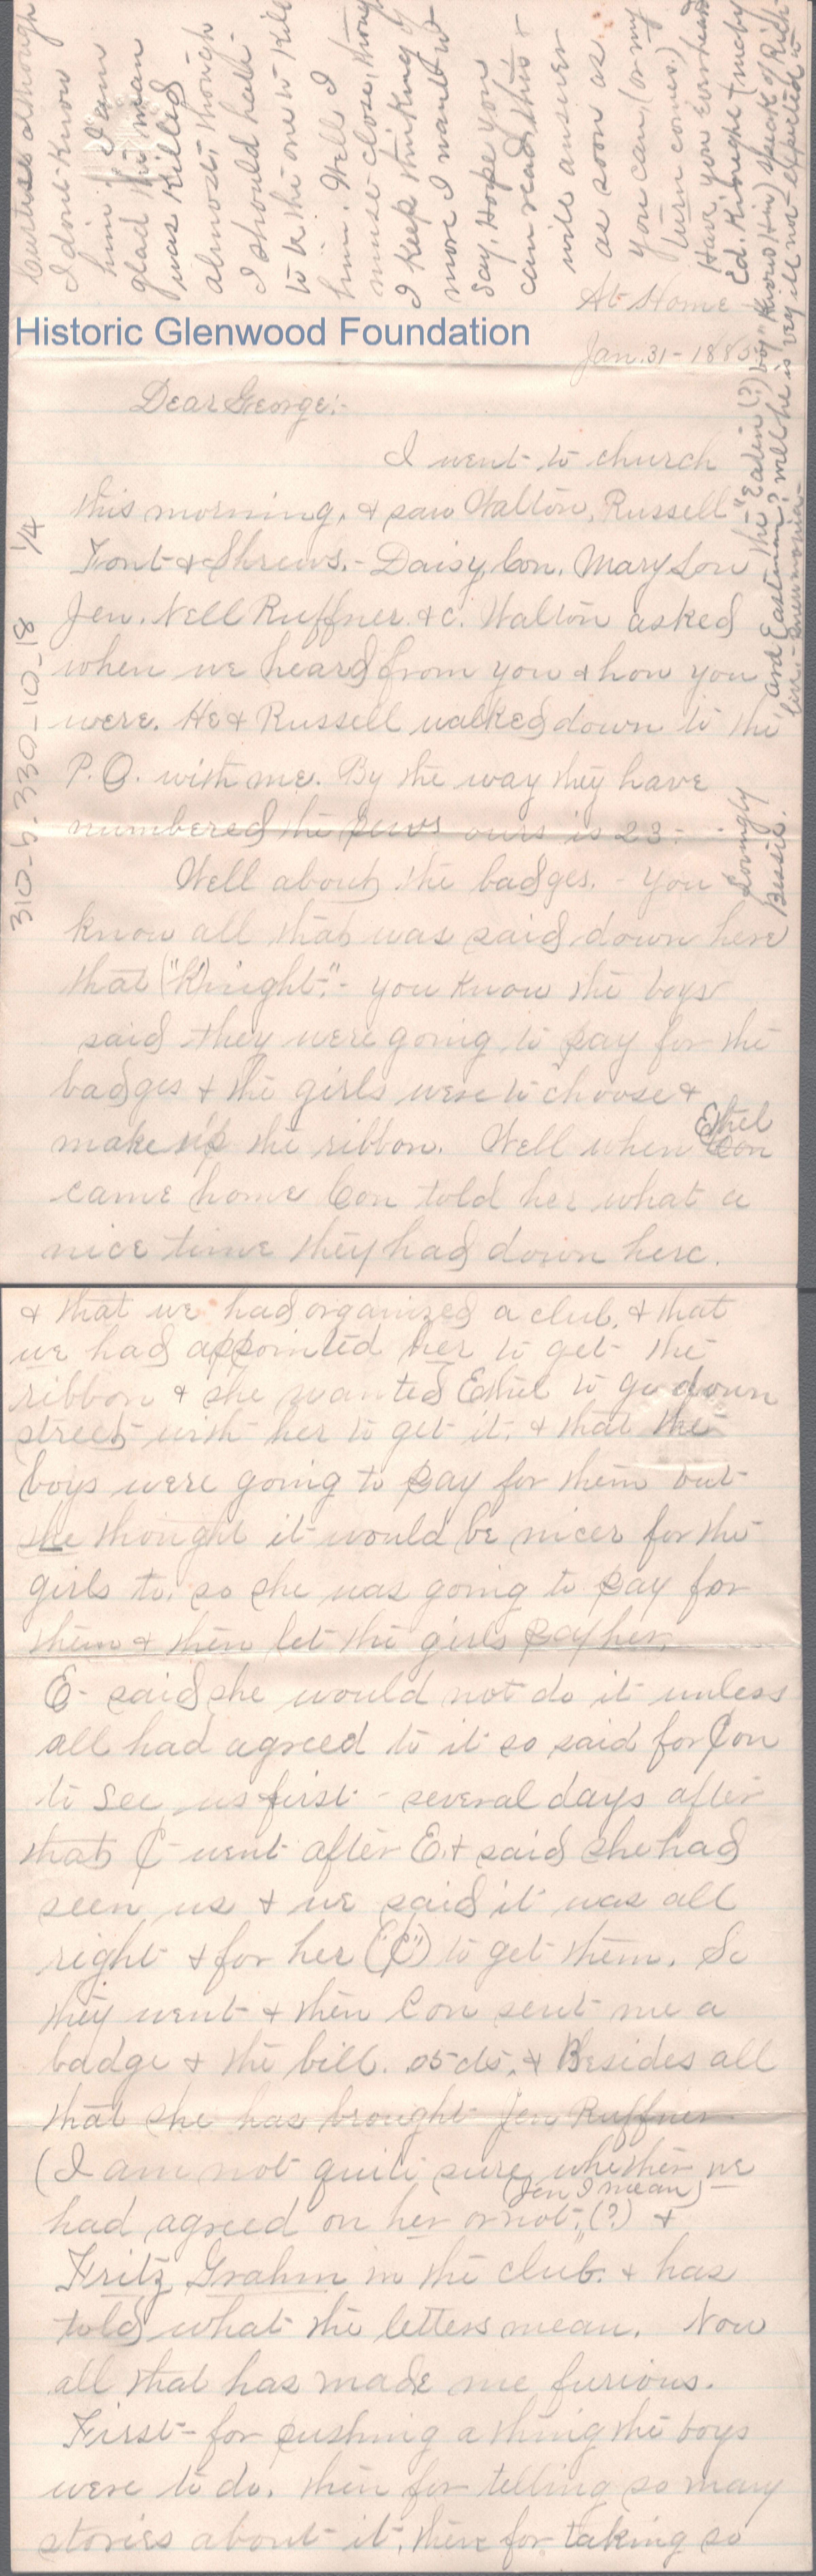 Curtise although
I dont know
him. I am
glad the man
was killed
almost, though
I should hate
to be the one to kill
him. Well I
must close, though
I keep thinking of
more I want to
say, Hope you
can read this &
will answer
as soon as
you can, (or my
turn comes.)
Have you ever heard
Ed. Knight (maby
the "Eaden (?) boy" knows him) speak of Rich-
ard Eastman? well he is very ill not expected to
live,- pneumonia-
Lovingly
Bessie.
At Home
Jan. 31 - 1885.
Historic Glenwood Foundation
310-b-330-10-18 1/4
Dear George:-
I went to church
this morning, & saw Walton, Russell
Font & Shrews.- Daisy, Con, Mary Lou
Jen. Nell Ruffner. &c. Walton asked
when we heard from you & how you
were. He & Russell walked down to the
P.O. with me. By the way they have
numbered the pews ours is 23.-
Well about the badges. - you
know all that was said down here
that ("K)night." - you know the boys
said they were going to pay for the
badges & the girls were to choose &
make up the ribbon. Well when Ethel
came home Con told her what a
nice time they had down here.
& that we had organized a club, & that
we had appointed her to get the
ribbon & she wanted Ethel to go down
street with her to get it, & that the
boys were going to pay for them but
she thought it would be nicer for the
girls to, so she was going to pay for
them & then let the girls pay her.
E- said she would not do it unless
all had agreed to it so said for Con
to see us first - several days after
that C- went after E. & said she had
seen us & we said it was all
right & for her ("C") to get them. So
they went & then Con sent me a
badge & the bill. 05 cts. & Besides all
that she has brought Jen Ruffner
(I am not quite sure whether we
(Jen I mean)
had agreed on her or not, (?) &
Fritz Grahm in the club. & has
told what the letters mean. Now
all that has made me furious.
First - for pushing a thing the boys
were to do. then for telling so many
stories about it, then for taking so